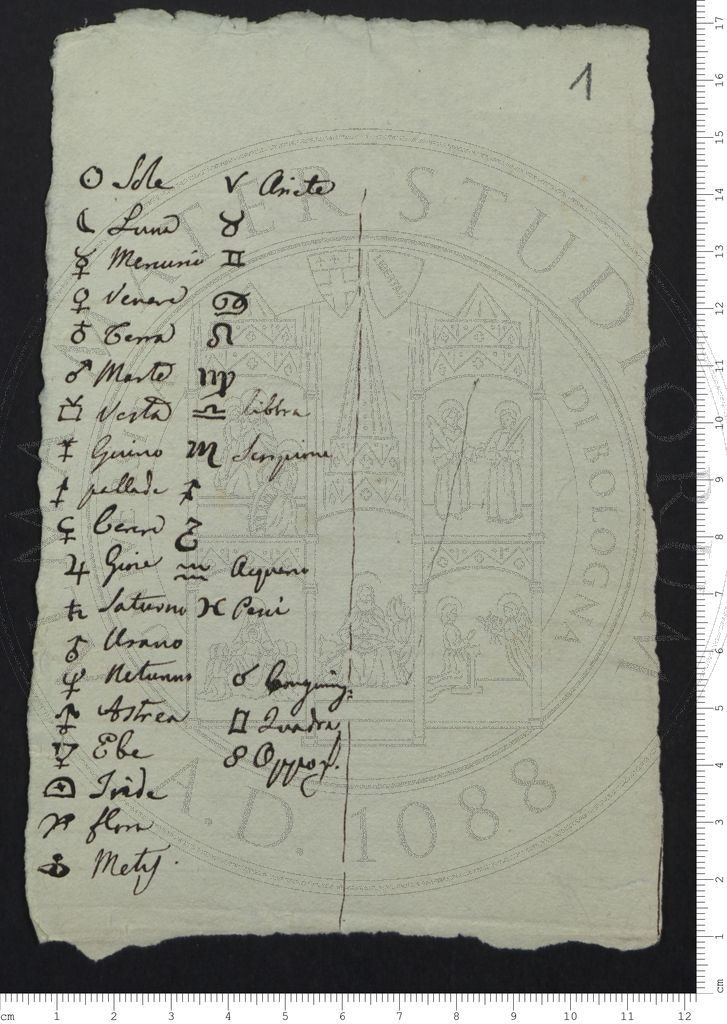 1
☉ Sole ♈ Ariete
☾ Luna ♉
☿ Mercurio ♊
♀ Venere ♋
♁ Terra ♌
♂ Marte ♍
⚶ Vesta ♎ libbra
⚵ Giuno ♏ Scorpione
⚴ pallade ♐
⚳ Cerere ♑
♃ Giove ♒ Acquario
♄ Saturno ♓ Pesci
♅ Urano
♆ Netunno ☌ Congiunz:
Astrea □ Quadra
Ebe ☍ Oppos.
Iride
flora
Metis
ALMA MATER STUDIORUM
A.D. 1088
DI BOLOGNA
LIBERTAS
cm 1 2 3 4 5 6 7 8 9 10 11 12
17
16
15
14
13
12
11
10
9
8
7
6
5
4
3
2
1
cm